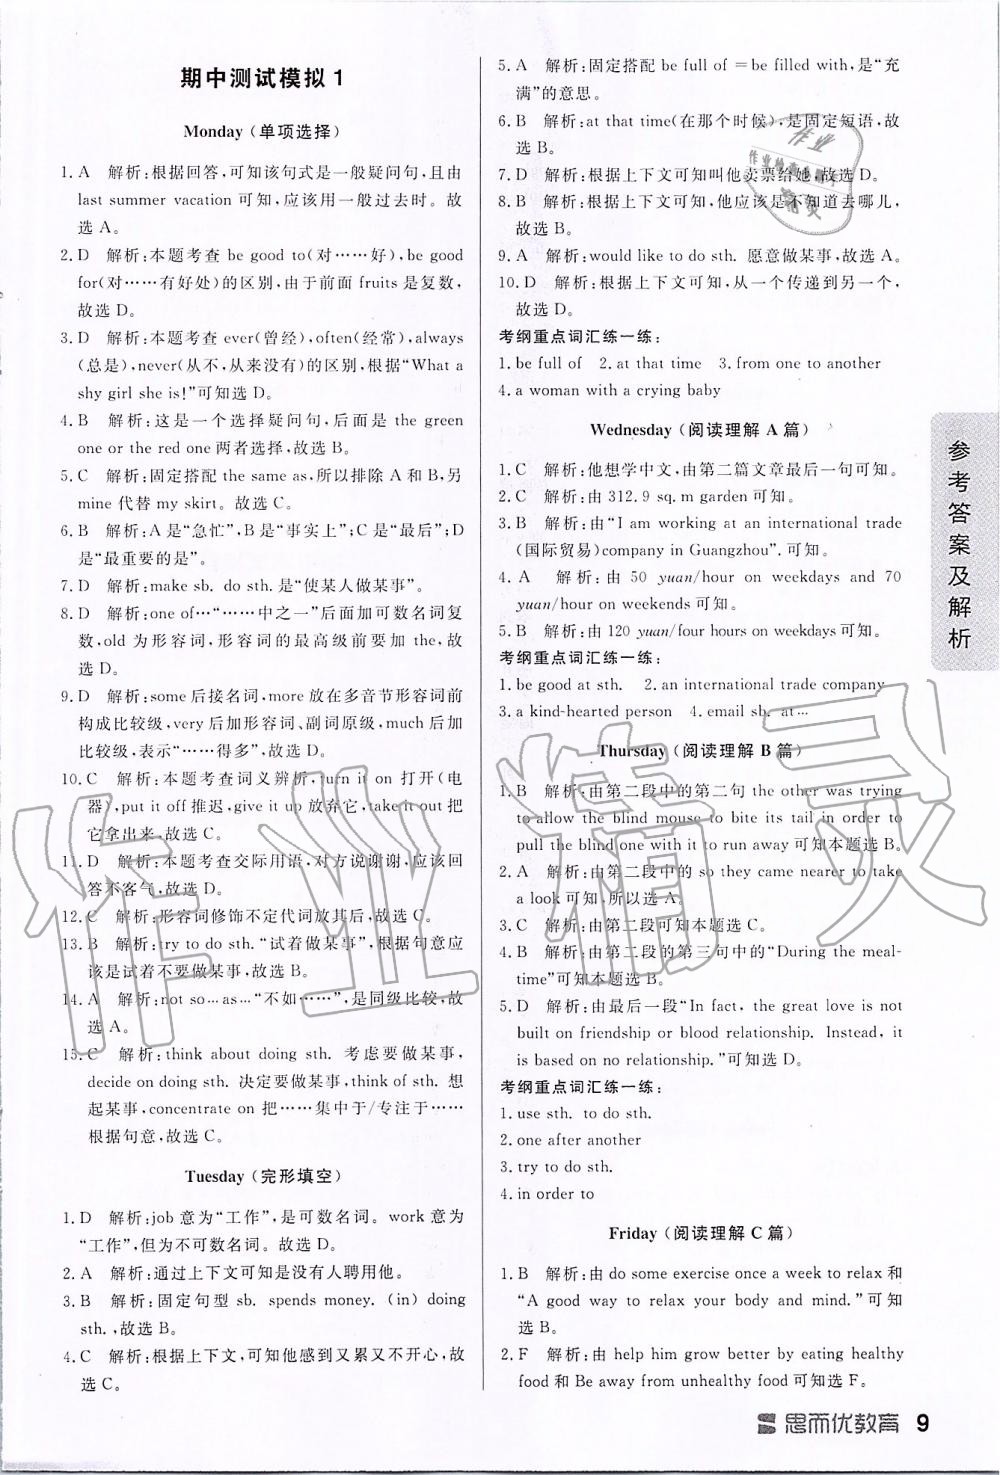 期中测试模拟 1
Monday (单项选择)
1. A 解析:根据回答,可知该句式是一般疑问句,且由
last summer vacation 可知,应该用一般过去时。故
选 A。
2. D 解析:本题考查 be good to(对……好),be good
for(对……有好处)的区别,由于前面 fruits 是复数,
故选 D。
3. D 解析:本题考查 ever(曾经),often(经常),always
(总是),never(从不,从来没有)的区别,根据“What a
shy girl she is!”可知选 D。
4. B 解析:这是一个选择疑问句,后面是 the green
one or the red one 两者选择,故选 B。
5. C 解析:固定搭配 the same as,所以排除 A 和 B,另
mine 代替 my skirt。故选 C。
6. B 解析:A 是“急忙”,B 是“事实上”;C 是“最后”;D
是“最重要的是”。
7. D 解析:make sb. do sth.是“使某人做某事”。
8. D 解析:one of…“……中之一”后面加可数名词复
数,old 为形容词,形容词的最高级前要加 the,故
选 D。
9. D 解析:some 后接名词,more 放在多音节形容词前
构成比较级,very 后加形容词、副词原级,much 后加
比较级,表示“……得多”,故选 D。
10. C 解析:本题考查词义辨析,turn it on 打开(电
器),put it off 推迟,give it up 放弃它,take it out 把
它拿出来,故选 C。
11. D 解析:本题考查交际用语,对方说谢谢,应该回
答不客气,故选 D。
12. C 解析:形容词修饰不定代词放其后,故选 C。
13. B 解析:try to do sth.“试着做某事”,根据句意应
该是试着不要做某事,故选 B。
14. A 解析:not so…as…“不如……”,是同级比较,故
选 A。
15. C 解析:think about doing sth. 考虑要做某事,
decide on doing sth. 决定要做某事,think of sth. 想
起某事,concentrate on 把……集中于/专注于……
根据句意,故选 C。
Tuesday (完形填空)
1. D 解析:job 意为“工作”,是可数名词。work 意为
“工作”,但为不可数名词。故选 D。
2. A 解析:通过上下文可知是没有人聘用他。
3. B 解析:固定句型 sb. spends money. (in) doing
sth.,故选 B。
4. C 解析:根据上下文,可知他感到又累又不开心,故
选 C。
5. A 解析:固定搭配 be full of =be filled with,是“充
满”的意思。
6. B 解析:at that time(在那个时候),是固定短语,故
选 B。
7. D 解析:根据上下文可知叫他卖票给她,故选 D。
8. B 解析:根据上下文可知,他应该是不知道去哪儿,
故选 B。
9. A 解析:would like to do sth. 愿意做某事,故选 A。
10. D 解析:根据上下文可知,从一个传递到另一个,
故选 D。
考纲重点词汇练一练:
1. be full of 2. at that time 3. from one to another
4. a woman with a crying baby
Wednesday (阅读理解 A 篇)
1. C 解析:他想学中文,由第二篇文章最后一句可知。
2. C 解析:由 312.9 sq. m garden 可知。
3. B 解析:由“I am working at an international trade
(国际贸易)company in Guangzhou”.可知。
4. A 解析:由 50 yuan/hour on weekdays and 70
yuan/hour on weekends 可知。
5. B 解析:由 120 yuan/four hours on weekdays 可知。
考纲重点词汇练一练:
1. be good at sth. 2. an international trade company
3. a kind-hearted person 4. email sb. at…
Thursday (阅读理解 B 篇)
1. B 解析:由第二段中的第二句 the other was trying
to allow the blind mouse to bite its tail in order to
pull the blind one with it to run away 可知本题选 B。
2. A 解析:由第二段中的 so they came nearer to take
a look 可知,所以选 A。
3. C 解析:由第二段可知本题选 C。
4. B 解析:由第二段的第三句中的“During the meal-
time”可知本题选 B。
5. D 解析:由最后一段“In fact, the great love is not
built on friendship or blood relationship. Instead, it
is based on no relationship.”可知选 D。
考纲重点词汇练一练:
1. use sth. to do sth.
2. one after another
3. try to do sth.
4. in order to
Friday (阅读理解 C 篇)
1. B 解析:由 do some exercise once a week to relax 和
“A good way to relax your body and mind.”可知
选 B。
2. F 解析:由 help him grow better by eating healthy
food 和 Be away from unhealthy food 可知选 F。
参考答案及解析
思而优教育 9
作业精灵